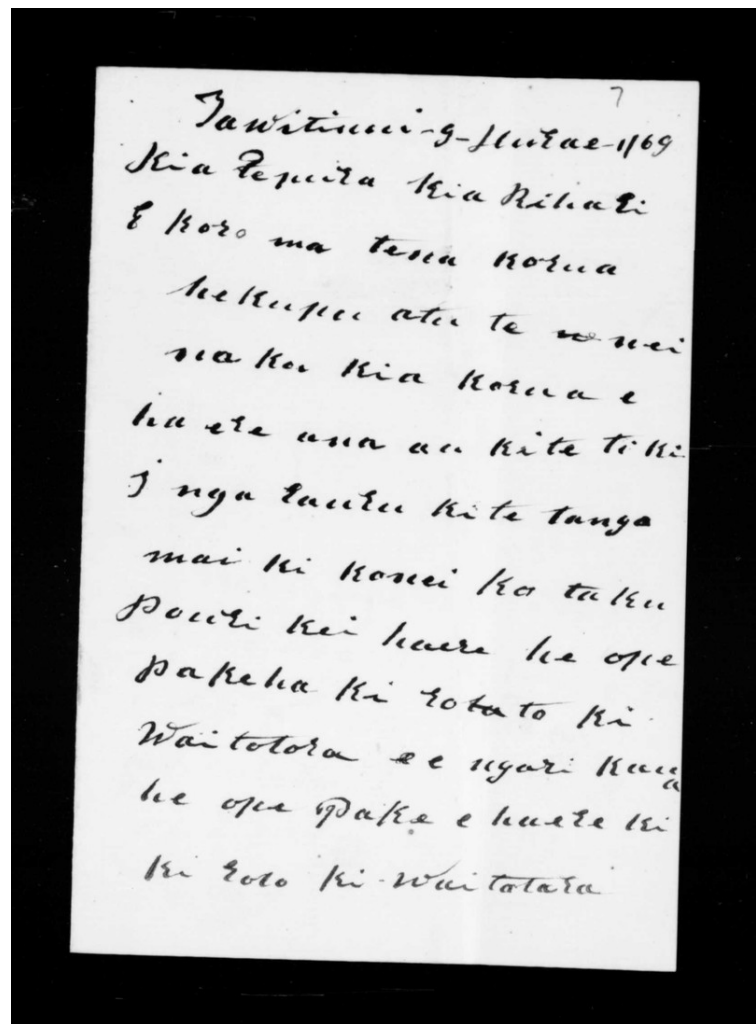 7
Tawitinui-9-Hurae-1/69
Kia Tepuira Kia Rihari
E Koro ma tena Korua
hekupu atu te nei
naku Kia Korua e
ha ere ana au kite tiki
I nga rauru kite tango
mai ki konei Ko taku
Pouri kei haere he ope
Pakeha Ki roto ki
Waitotora ee ngari kaua
he ope Pake e haere ki
ki roto ki-Waitotara